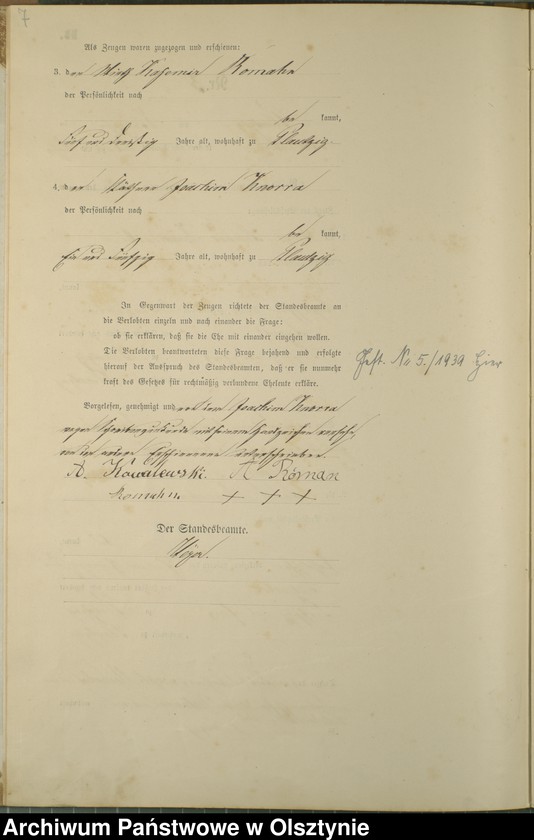 7
Als Zeugen waren zugezogen und erschienen:
3. der Wirth Romahn
der Persönlichkeit nach
be kannt,
Fünf und dreißig Jahre alt, wohnhaft zu Plautzig.
4. der Joachim Knorra
der Persönlichkeit nach
be kannt,
Ein und Fünfzig Jahre alt, wohnhaft zu Plautzig
In Gegenwart der Zeugen richtete der Standesbeamte an
die Verlobten einzeln und nach einander die Frage:
ob sie erklären, daß sie die Ehe mit einander eingehen wollen.
Die Verlobten beantworteten diese Frage bejahend und erfolgte
hierauf der Ausspruch des Standesbeamten, daß er sie nunmehr
kraft des Gesetzes für rechtmäßig verbundene Eheleute erkläre.
Gest. No 5./1939 hier
Vorgelesen, genehmigt und von dem Joachim Knorra
wegen Schreibensunkunde mit seinem Handzeichen versehen,
von den Erschienenen unterschrieben.
A. Kowalewski. A Roman
Romahn + + +
Der Standesbeamte.